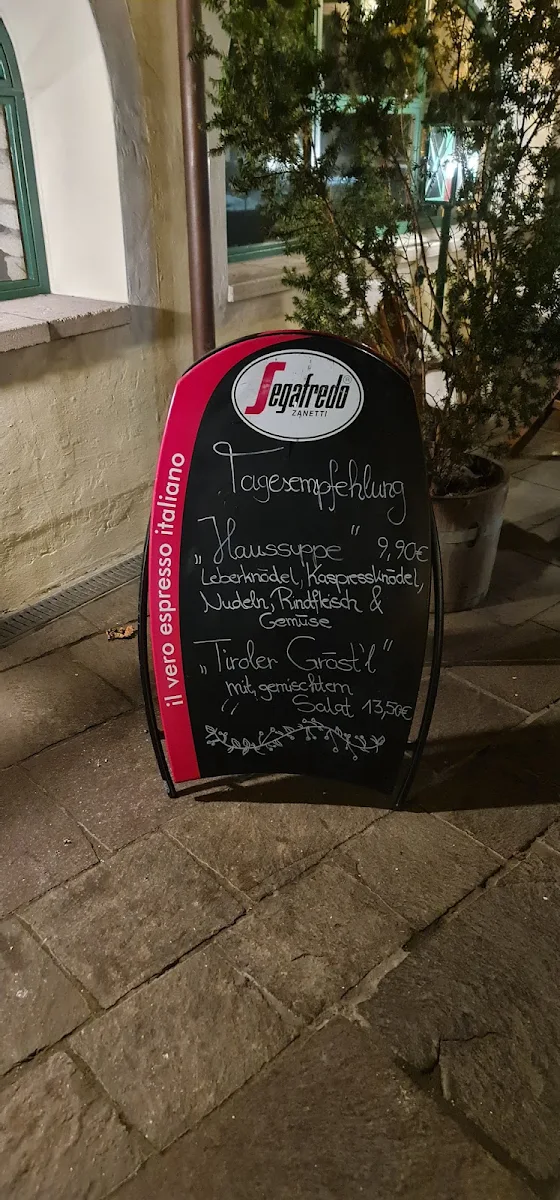 Segafredo®
ZANETTI
il vero espresso italiano
Tagesempfehlung
„Haussuppe" 9,90€
Leberknödel, Kaspressknödel,
Nudeln, Rindfleisch &
Gemüse
„Tiroler Gröst'l"
mit gemischtem
Salat 13,50€